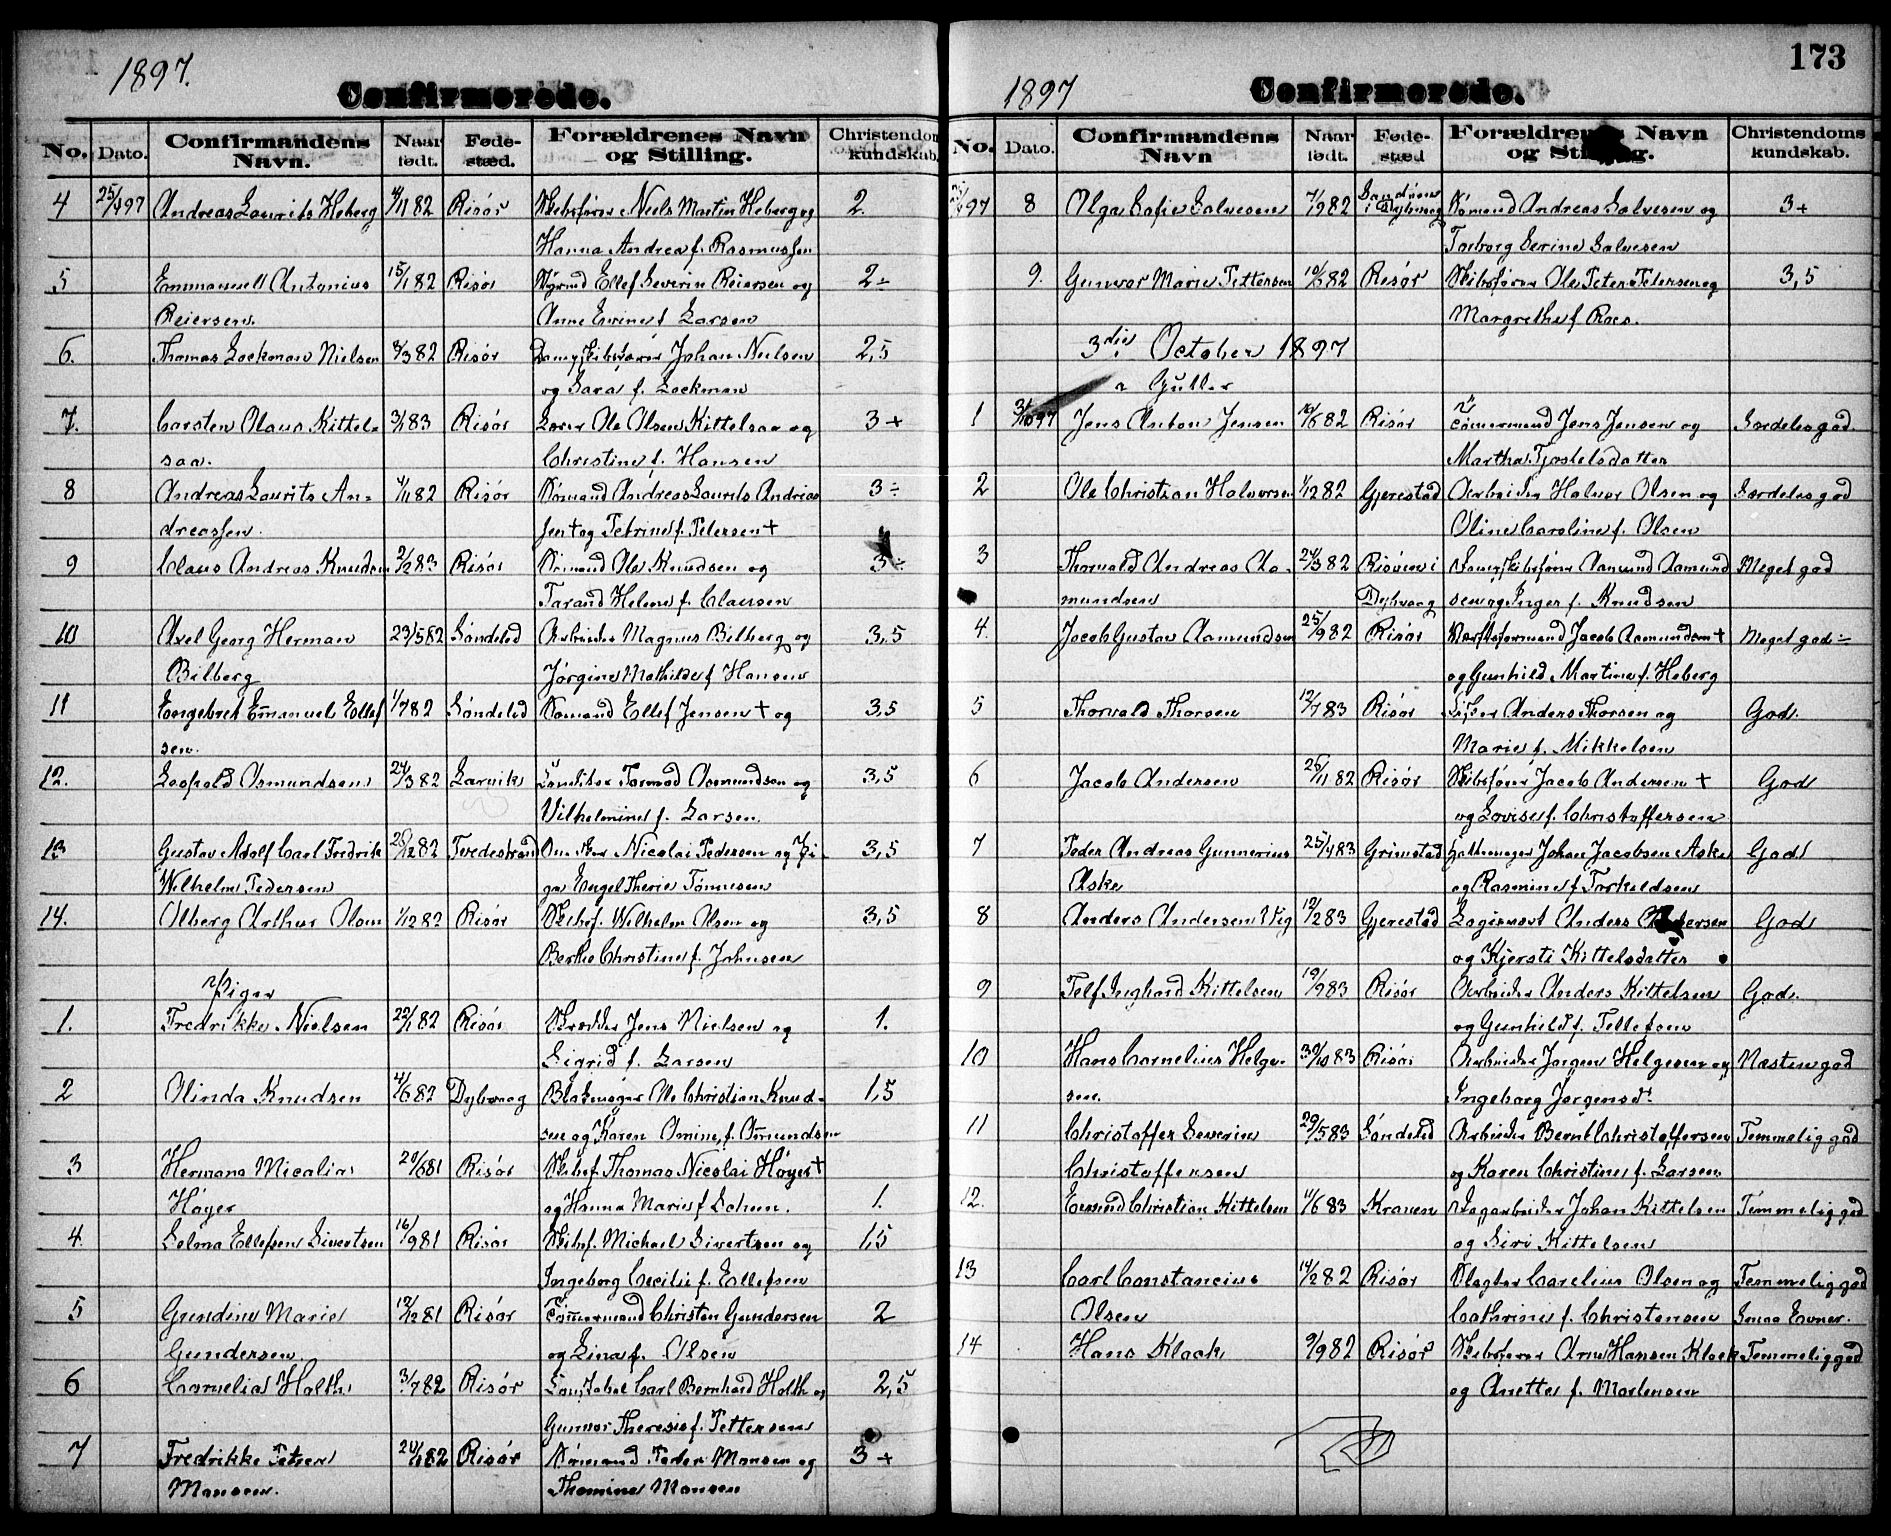 1897.
Confirmerede.
No. Dato. Confirmandens Navn. Naar født. Føde-sted. Forældrenes Navn og Stilling. Christendomskundskab.
4 25/4 97 Andreas Laurits Heberg 4/11 82 Risør Skibsfører Niels Martin Heberg og 2.
Hanna Andrea f. Rasmussen
5 Emmanuell Antonius 15/1 82 Risør Ellef Severin Reiersen og 2÷
Reiersen. Anne Evine f Larsen
6. Thomas Lockman Nielsen 8/3 82 Risør Johan Nielsen 2,5
og Sara f. Lockman
7. Carsten Olaus Kittel= 3/1 83 Risør Ole Olsen Kittelsaa og 3+
saa. Christine f. Hansen
8 Andreas Laurits An= 4/11 82 Risør Sømand Andreas Laurits Andreas 3÷
dreassen. sen + og Petrine f. Petersen +
9 Claus Andreas Knudsen 2/2 83 Risør Sømand Ole Knudsen og 3÷
Tarand Helene f. Clausen
10 Axel Georg Herman 23/5 82 Søndeled Arbeider Magnus Bilberg og 3,5
Bilberg Jørgine Mathilde f Hansen
11 Engebret Emanuel Ellef 1/7 82 Søndeled Sømand Ellef Jensen + og 3,5
sen.
12. Leopold Osmundsen 24/3 82 Larvik Osmundsen og 3,5
Vilhelmine f. Larsen
13 Gustav Adolf Carl Fredrik 28/12 82 Tvedestrand Nicolai Pedersen og 3,5
Wilhelm Pedersen
14. Alberg Arthur Olsen 1/12 82 Risør Skibsf. Wilhelm Olsen og 3,5
Berthe Christine f. Johnsen
Piger
1. Fredrikke Nielsen 22/1 82 Risør Skrædder Jens Nielsen og 1.
Sigrid f. Larsen
2 Olinda Knudsen 4/6 82 Dybvaag Ole Christian Knud- 1,5
sen og Karen Omine f. Osmundsen
3 Hermana Micalia 20/6 81 Risør Skibsf. Thomas Nicolai Høyer +
Høyer og Hanna Marie f 1.
4. Selma Ellefsen Sivertsen 16/9 81 Risør Skibsf. Michael Sivertsen og 1,5
Ingeborg Cecilie f. Ellefsen
5 Gundine Marie 12/12 81 Risør Tømmermand Christen Gundersen 2
Gundersen og Lina f. Olsen
6 Cornelia Holth 3/7 82 Risør Carl Bernhard Holth og 2,5
Gunvor Theresie f. Pettersen
7 Fredrikke Petrea 20/1 82 Risør Sømand Peder Monsen og 3+
Monsen. Thomine Monsen
173
1897
Confirmerede.
No. Dato. Confirmandens Navn Naar født. Føde-sted Forældrenes Navn og Stilling. Christendomskundskab.
25/4 97 8 Olga Sofie Salvesen 7/9 82 i Dybvaag Sømand Andreas Salvesen og 3+
Torborg Serine Salvesen
9. Gunvor Marie Pettersen 10/3 82 Risør Skibsfører Ole Peter Petersen og 3,5
Margrethe f Roes.
3die October 1897
a Gutter
1 3/10 97 Jens Anton Jensen 10/8 82 Risør Tømermand Jens Jensen og Særdeles god.
Martha Tjostelsdatter
2 Ole Christian Halvorsen 1/12 82 Gjerestad Arbeider Halvor Olsen og Særdeles god
Oline Caroline f. Olsen
3 Thorvald Andreas Aa- 24/3 82 Risøen i Aamund Aamund Meget god
mundsen Dybvaag sen og Inger f. Knudsen
4. Jacob Gustav Aamundsen 25/9 82 Risør Værftsformand Jacob Aamundsen + Meget god÷
og Gunhild Martine f. Heberg
5 Thorvald Thorsen 12/7 83 Risør Anders Thorsen og God.
Marie f. Mikkelsen
6 Jacob Andersen 26/11 82 Risør Skibsfører Jacob Andersen + God
og Lovise f. Christoffersen
7 Peder Andreas Gunnerius 25/4 83 Grimstad Johan Jacobsen Aske God
Aske og Rasmine f Torkeldsen
8 Anders Andersen Vig 12/2 83 Gjerestad Anders Andersen God
og Kjersti Kittelsdatter
9 Telf Inghard Kittelsen 19/9 83 Risør Arbeider Anders Kittelsen God.
og Gunhild f. Tellefsen
10 Hans Cornelius Helge- 30/10 83 Risør Arbeider Jørgen Helgesen og Næsten god
sen. Ingeborg Jørgensd.
11 Christoffer Severin 29/5 83 Søndeled Arbeider Bernt Christoffersen Temmelig god
Christoffersen og Karen Christine f. Larsen
12. Christian Kittelsen 11/6 83 Johan Kittelsen Temmelig god
og Siri Kittelsen
13 Carl Constancius 14/2 82 Risør Slagter Carelius Olsen og Temmelig god
Olsen Cathrine f. Christensen Smaa Evner.
14 Hans Klock 9/9 82 Risør Skibsfører Arne Hansen Klock Temmelig god
og Anette f. Mortensen